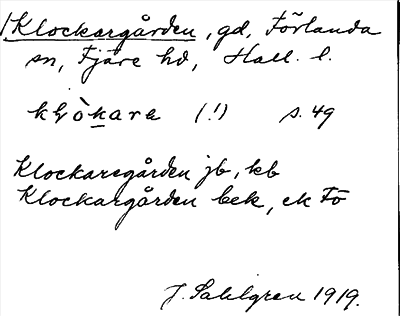 Klockargården, gd, Förlanda
sn, Fjäre hd, Hall. l.
(!) s. 49
Klockaregården jb, kb
Klockargården bek, ek Fö
J. Sahlgren 1919.